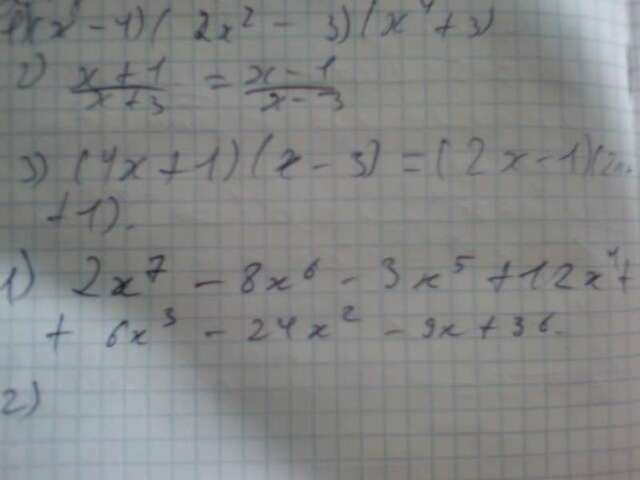 (x - 4)(2x² - 3)(x⁴ + 3)
2) x + 1 / x + 3 = x - 1 / x - 3
3) (4x + 1)(x - 3) = (2x - 1)(2x
+ 1).
1) 2x⁷ - 8x⁶ - 3x⁵ + 12x⁴ +
+ 6x³ - 24x² - 9x + 36.
2)